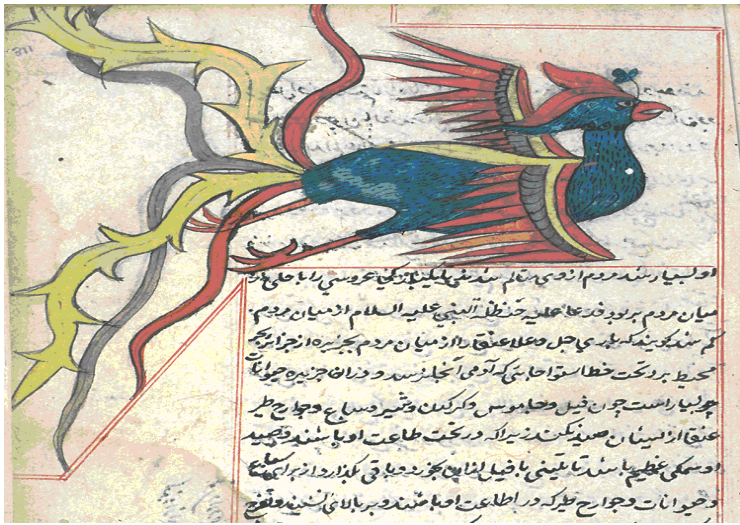 او بسیار شد مردم از وی متالم شدند عروسی را با حلی از
میان مردم بربود فدعا علیه حنظلة النبی علیه السلام از میان مردم.
کم شد کویند که باری جل وعلا عنقا را از میان مردم بجزیره از جزایر بحر
محیط برد تحت خط استوا جایی که آدمی آنجا نرسد و در ان جزیره حیوانات
بسیار است چون فیل و جاموس و کرکدن و شیر و سباع و جوارح طیر
عنقا از ایشان صید نکند زیرا که در تحت طاعت او باشند و صید
او سمکی عظیم باشد تا تنینی یا فیل از این بخورد و باقی بگذارد از برای سباع
و حیوانات و جوارح طیر که در اطاعت او باشند و بر بالای نشیند و تفرج